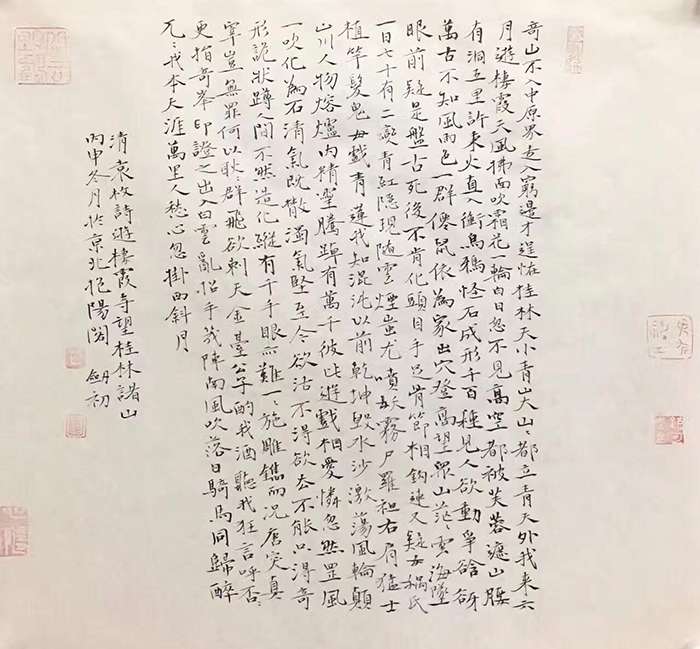 奇山不入中原界走入窮邊才逞怪桂林天小青山大山々都立青天外我來六
月遊棲霞天風拂面吹霜花一輪白日忽不見高空都被芙蓉遮山腰
有洞五里許秉火直入衝烏鴉怪石成形千百種見人欲動爭谽谺
萬古不知風雨色一群僊鼠依為家出穴登高望眾山茫々雲海墜
眼前疑是盤古死後不肯化頭目手足骨節相鈎連又疑女媧氏
一日七十有二變青紅隱現隨雲煙蚩尤噴妖霧尸羅袒右肩猛士
植竿髮鬼母戲青蓮我知混沌以前乾坤毀水沙激蕩風輪顛
山川人物熔爐內精靈騰踔有萬千彼此遊戲相愛憐忽然罡風
一吹化為石清氣既散濁氣堅至今欲活不得欲去不能只得奇
形詭狀蹲人間不然造化縱有千手眼亦難一々施雕鐫而況唐突真
宰豈無罪何以耿群飛欲刺天金臺公子酌我酒聽我狂言呼否々
更指奇峯印證之出入白雲亂招手幾陣南風吹落日騎馬同歸醉
兀々我本天涯萬里人愁心忽掛西斜月
清袁枚詩遊棲霞寺望桂林諸山
丙申冬月於京北悒陽閣 劍初